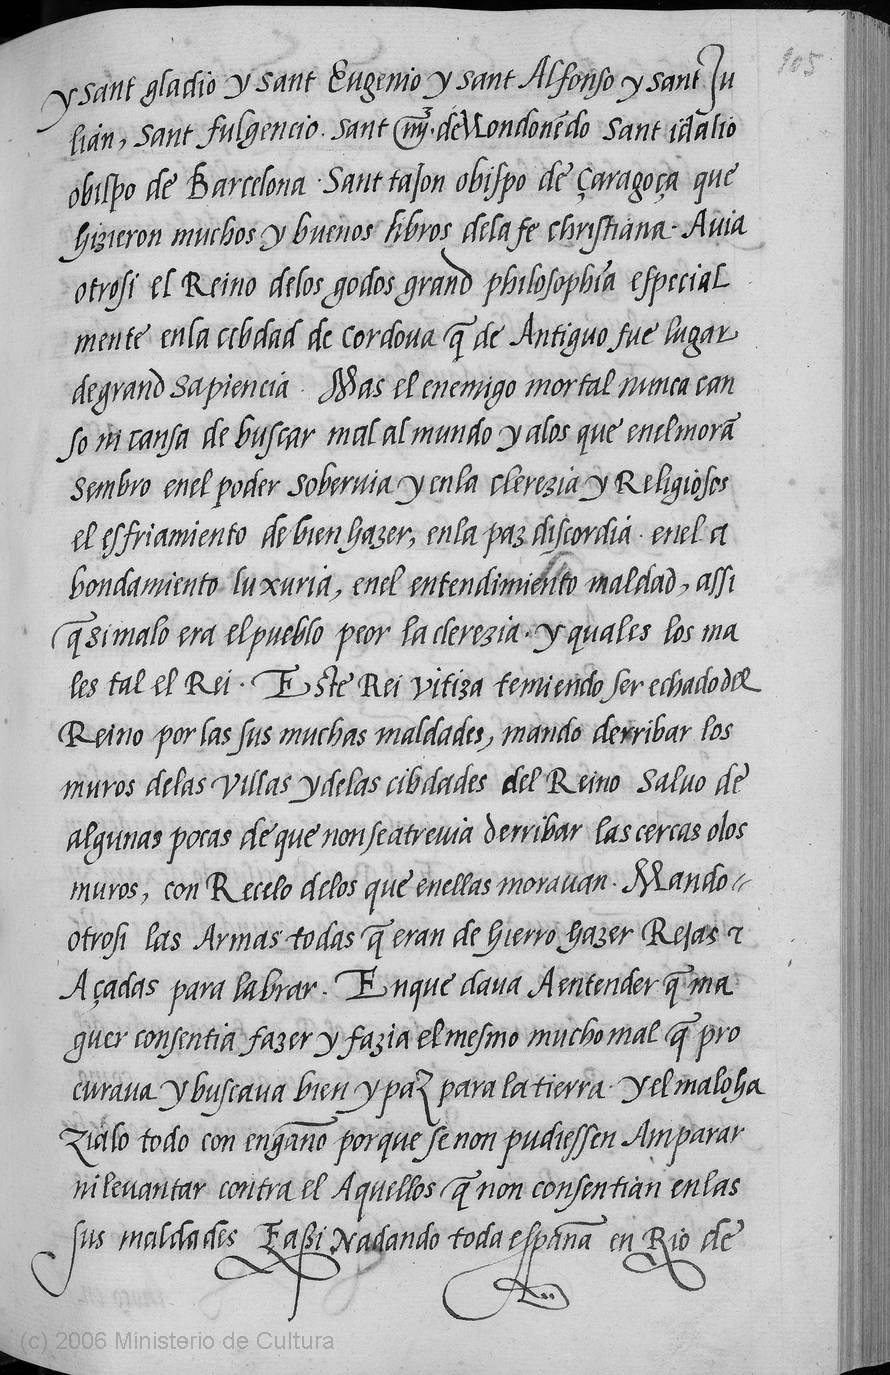 105
y sant gladio y sant Eugenio y sant Alfonso y sant Ju
lian, sant fulgencio. sant de Mondoñedo sant idalio
obispo de Barcelona. Sant tajon obispo de Çaragoça que
hizieron muchos y buenos libros dela fe christiana. Auia
otrosi el Reino delos godos grand philosophia especial
mente enla cibdad de cordoua q̃ de Antiguo fue lugar
degrand sapiencia. Mas el enemigo mortal nunca can
so ni cansa de buscar mal al mundo y alos que enel morã
sembro enel poder soberuia y enla clerezia y Religiosos
el esfriamiento de bien hazer, enla paz discordia. enel a
bondamiento luxuria, enel entendimiento maldad, assi
q̃ si malo era el pueblo peor la clerezia. y quales los ma
les tal el Rei. Este Rei vitiza temiendo ser echado del
Reino por las sus muchas maldades, mando derribar los
muros delas villas y delas cibdades del Reino Saluo de
algunas pocas de que non se atreuia derribar las cercas olos
muros, con Recelo delos que enellas morauan. Mando
otrosi las Armas todas q̃ eran de hierro hazer Rejas τ
Açadas para labrar. Enque daua A entender q̃ ma
guer consentia fazer y fazia el mesmo mucho mal q̃ pro
curaua y buscaua bien y paz para la tierra. y el malo ha
zialo todo con engaño porque se non pudiessen Amparar
ni leuantar contra el Aquellos q̃ non consentian en las
sus maldades Eassi Nadando toda españa en Rio de
(c) 2006 Ministerio de Cultura